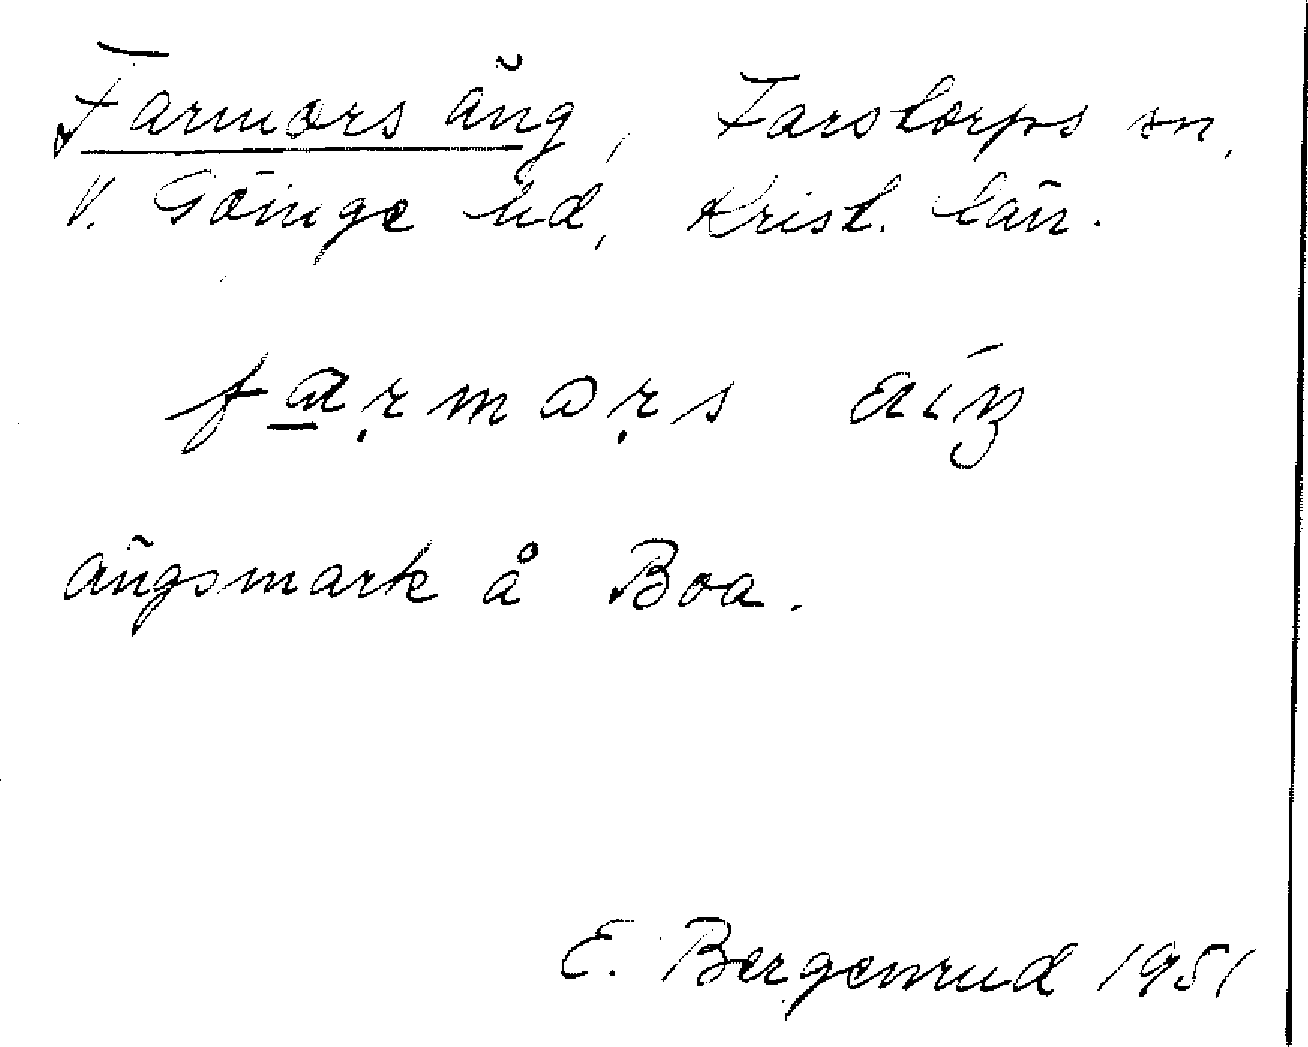 Farmors äng, Farstorps sn,
V. Göinge hd, Krist. län.
farmars
ängsmark å Boa.
E. Bergenrud 1951